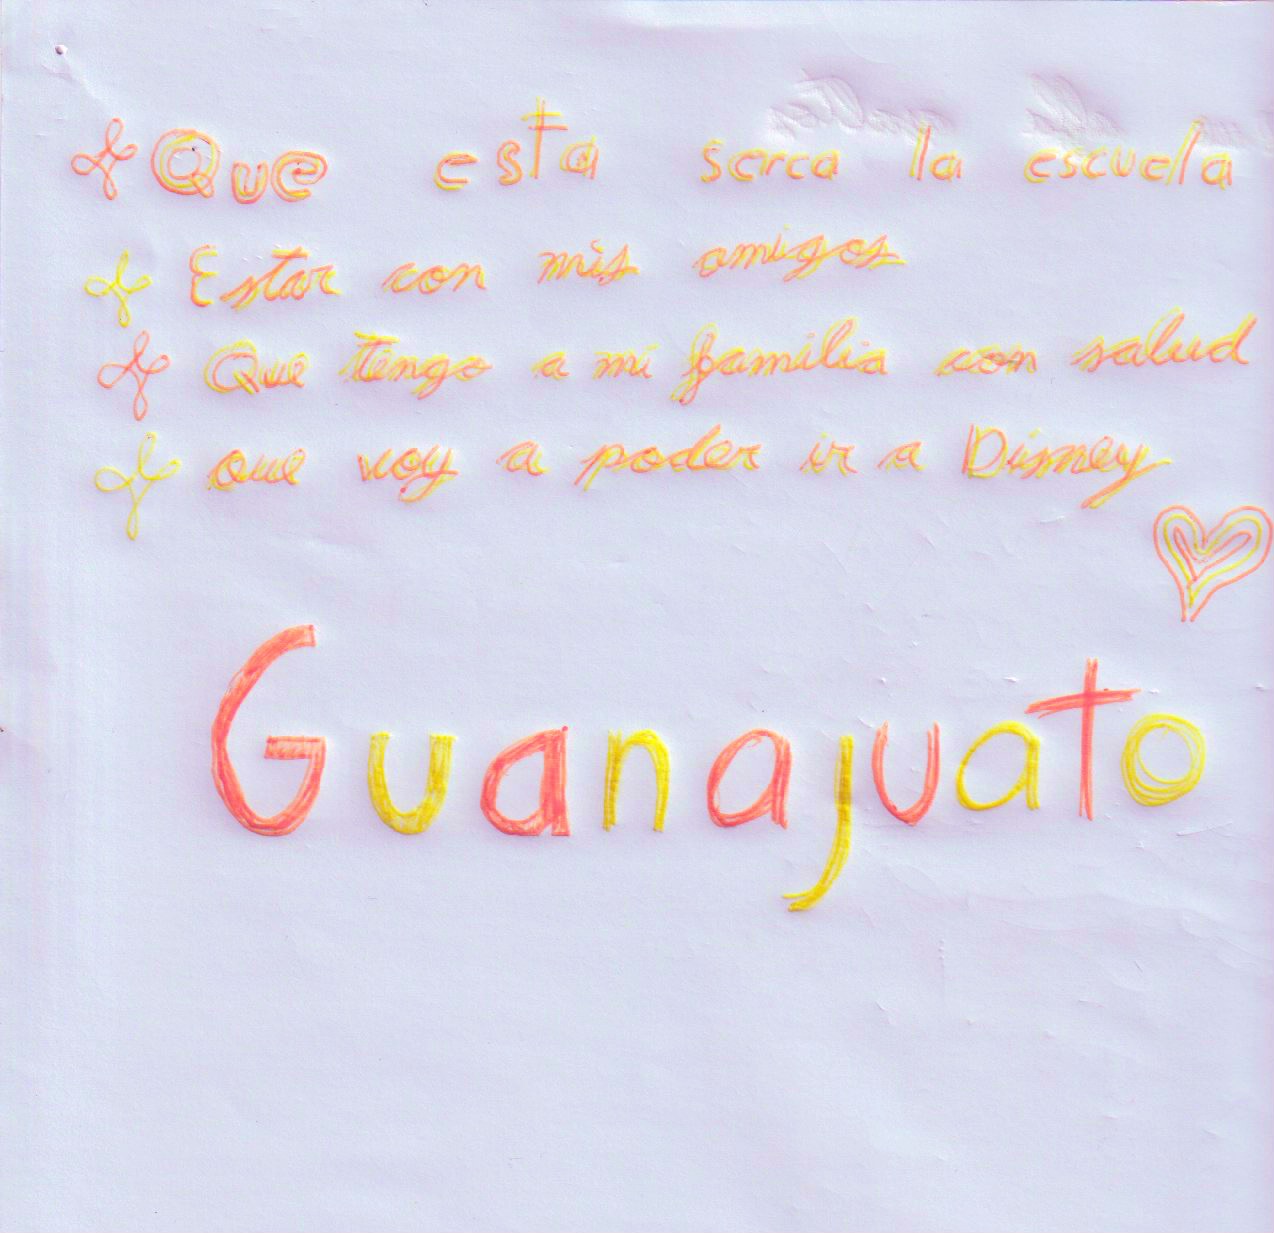 Que esta serca la escuela
Estar con mis amigos
Que tengo a mi familia con salud
que voy a poder ir a Disney
Guanajuato